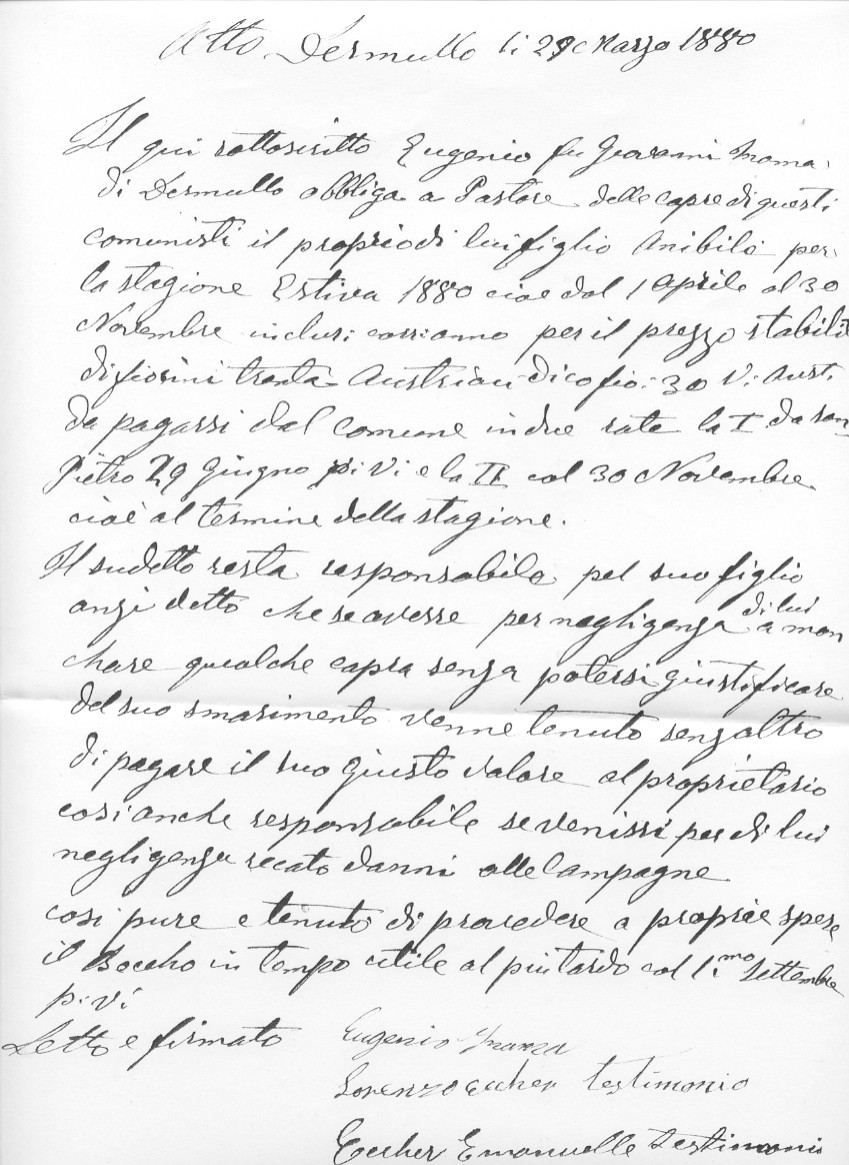 Atto Dermullo li 29 Marzo 1880
Il qui sottoscritto Eugenio fu Giovanni Inama
di Dermullo obbliga a Pastore delle capre di questi
comunisti il proprio di lui figlio Anibile per
la stagione Estiva 1880 cioe dal 1 Aprile al 30
Novembre inclusi corrianno per il prezzo stabilit
di fiorini trenta Austriaci dico fio: 30 V: Aust.
da pagarsi dal comune in due rate la I da san
Pietro 29 Giugno p: vi e la II col 30 Novembre
cioè al termine della stagione.
Il sudetto resta responsabile pel suo figlio
anzi detto che se avesse per negligenza di lui a man
chare qualche capra senza potersi giustificare
del suo smarimento venne tenuto senz altro
di pagare il suo giusto valore al proprietario
cosi anche responsabile se venissi per di lui
negligenza recato danni alle Campagne
cosi pure e tenuto di provedere a proprie spese
il Boccho in tempo utile al piu tardo col 1.mo Settembre
p: vi
Letto e firmato
Eugenio Inama
Lorenzo Eccher testimonio
Eccher Emanuelle testimonio